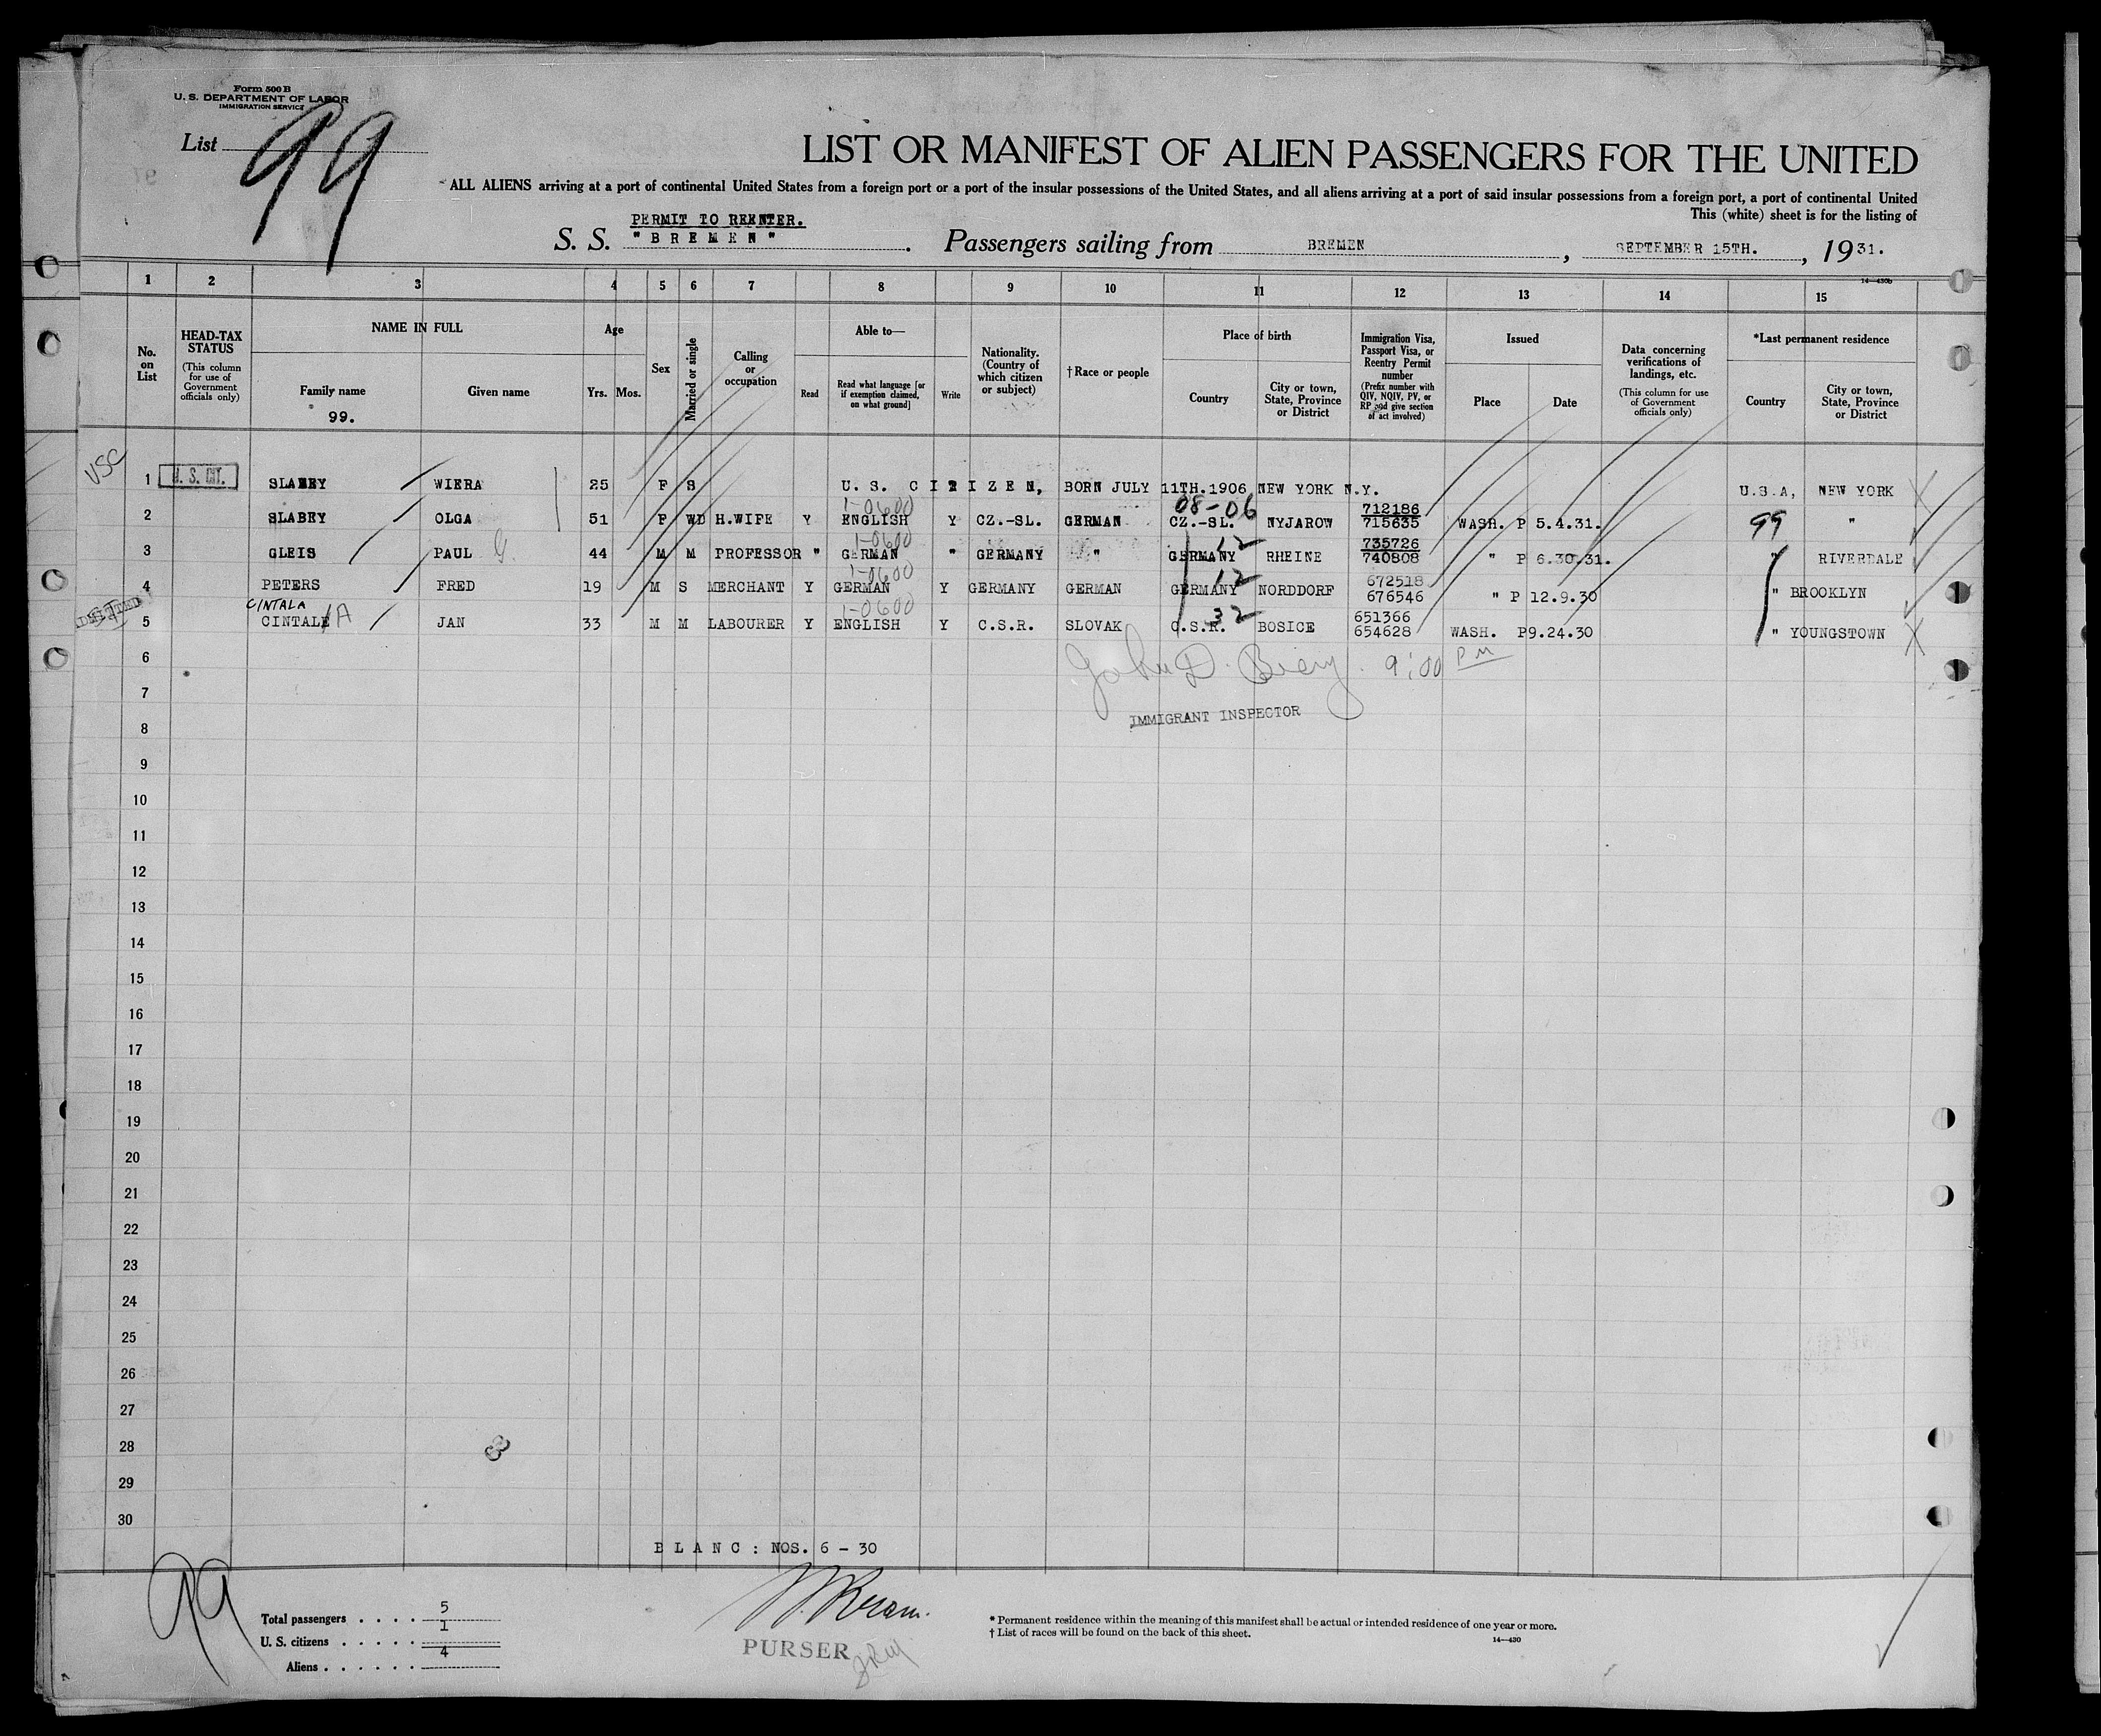 Form 500 B
U. S. DEPARTMENT OF LABOR
IMMIGRATION SERVICE
List 99
LIST OR MANIFEST OF ALIEN PASSENGERS FOR THE UNITED
ALL ALIENS arriving at a port of continental United States from a foreign port or a port of the insular possessions of the United States, and all aliens arriving at a port of said insular possessions from a foreign port, a port of continental United
This (white) sheet is for the listing of
PERMIT TO REENTER.
S. S. "BREMEN". Passengers sailing from BREMEN, SEPTEMBER 15TH., 1931.
14—430b
1 2 3 4 5 6 7 8 9 10 11 12 13 14 15
No. on List
HEAD-TAX STATUS (This column for use of Government officials only)
NAME IN FULL
Family name
99.
Given name
Age
Yrs. Mos.
Sex
Married or single
Calling or occupation
Able to—
Read
Read what language [or if exemption claimed, on what ground]
Write
Nationality. (Country of which citizen or subject)
†Race or people
Place of birth
Country
City or town, State, Province or District
Immigration Visa, Passport Visa, or Reentry Permit number (Prefix number with QIV, NQIV, PV, or RP and give section of act involved)
Issued
Place
Date
Data concerning verifications of landings, etc. (This column for use of Government officials only)
*Last permanent residence
Country
City or town, State, Province or District
USC 1 U. S. CIT. SLABEY WIERA 25 F S U. S. CITIZEN, BORN JULY 11TH.1906 NEW YORK N.Y. U.S.A, NEW YORK X
1-0600 08-06 712186
2 SLABEY OLGA 51 F WD H.WIFE Y ENGLISH Y CZ.-SL. GERMAN CZ.-SL. NYJAROW 715635 WASH. P 5.4.31. 99 "
1-0600 12 735726
3 GLEIS PAUL G. 44 M M PROFESSOR " GERMAN " GERMANY " GERMANY RHEINE 740808 " P 6.30.31. " RIVERDALE
1-0600 12 672518
4 PETERS FRED 19 M S MERCHANT Y GERMAN Y GERMANY GERMAN GERMANY NORDDORF 676546 " P 12.9.30 " BROOKLYN
CINTALA 1-0600 32 651366
5 CINTALE A JAN 33 M M LABOURER Y ENGLISH Y C.S.R. SLOVAK C.S.R. BOSICE 654628 WASH. P9.24.30 " YOUNGSTOWN X
6
John D. 9:00 PM
7
IMMIGRANT INSPECTOR
8
9
10
11
12
13
14
15
16
17
18
19
20
21
22
23
24
25
26
27
28
29
30
BLANC: NOS. 6 - 30
99
Total passengers . . . . 5
U. S. citizens . . . . . 1
Aliens . . . . . . 4
PURSER
* Permanent residence within the meaning of this manifest shall be actual or intended residence of one year or more.
† List of races will be found on the back of this sheet.
14—430